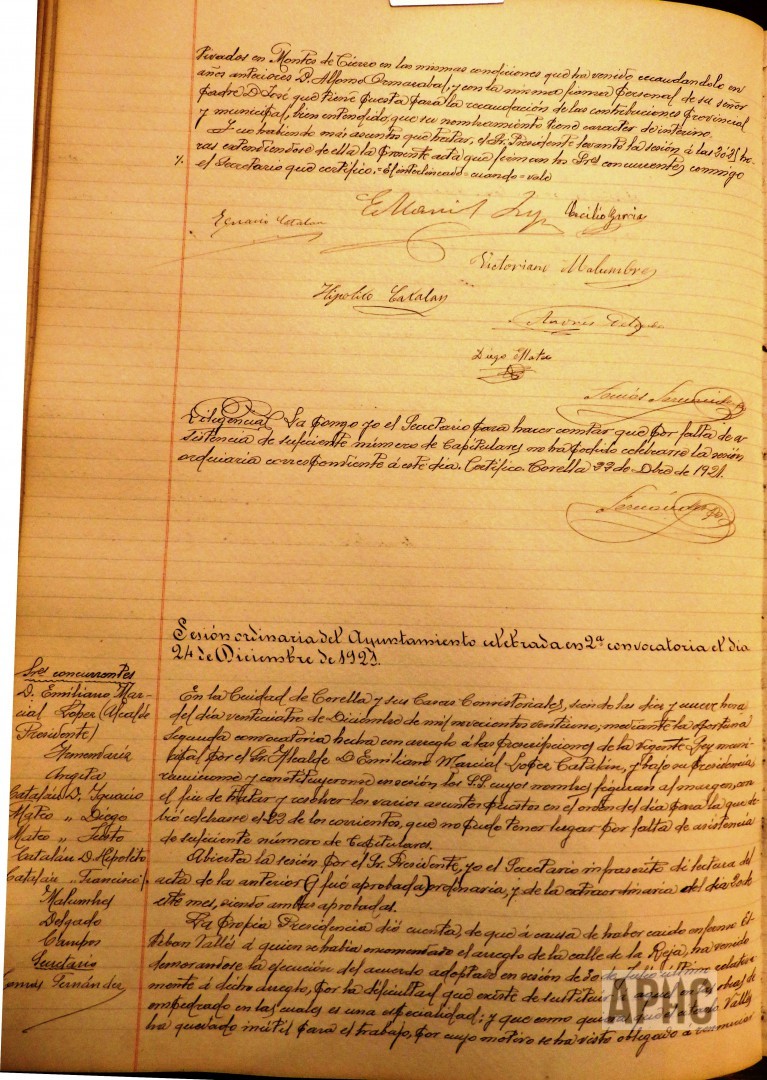 tivados en Montes de Cierzo en las mismas condiciones que ha venido recaudandolo en
años anteriores D. Alfonso Ormazabal, y con la misma fianza personal de su señor
padre D. José que tiene puesta para la recaudación de las contribuciones provincial
y municipal, bien entendido, que su nombramiento tiene caracter de interino.
Y no habiendo más asuntos que tratar, el Sr. Presidente levantó la sesión á las 20 y 25 ho-
ras extendiendose de ella la presente acta que firman los Sres concurrentes conmigo
el Secretario que certifico.=El interlineado=cuando=vale
Ignacio Catalan
E Marcial Cecilio Garcia
Victoriano Malumbres
Hipolito Catalan
Andrés Delgado
Diego Mateo
Tomás Fernández
Diligencia. La pongo yo el Secretario para hacer constar que por falta de a-
sistencia de suficiente número de Capitulares no ha podido celebrarse la sesión
ordinaria correspondiente á este dia. Certifico. Corella 22 de Dbre de 1921.
Fernández
Sesión ordinaria del Ayuntamiento celebrada en 2ª convocatoria el dia
24 de Diciembre de 1921.
Sres concurrentes
D. Emiliano Mar-
cial López (Alcalde
Presidente)
Armendariz
Angela
Catalán D. Ignacio
Mateo " Diego
Mateo " Justo
Catalán D. Hipolito
Catalan " Francisco
Malumbres
Delgado
Campos
Secretario
Tomás Fernández
En la Ciudad de Corella y sus Casas Consistoriales, siendo las diez y nueve horas
del día venticuatro de Diciembre de mil novecientos ventiuno; mediante la oportuna
segunda convocatoria hecha con arreglo á las prescripciones de la vigente Ley muni-
cipal por el Sr. Alcalde D. Emiliano Marcial López Catalán, y bajo su Presidencia
reunieronse y constituyeronse en sesión los S.S. cuyos nombres figuran al margen, con
el fin de tratar y resolver los varios asuntos puestos en el orden del día para la que de-
bió celebrarse el 22 de los corrientes, que no pudo tener lugar por falta de asistencia
de suficiente número de Capitulares.
Abierta la sesión por el Sr. Presidente, yo el Secretario infrascrito di lectura del
acta de la anterior (y fué aprobada) ordinaria, y de la extraordinaria del dia 20 de
este mes, siendo ambas aprobadas.
La propia Presidencia dió cuenta, de que á causa de haber caido enfermo Es-
teban Vallés á quien se habia encomendado el arreglo de la calle de la Reja, ha venido
demorandose la ejecución del acuerdo adoptado en sesión de 30 de Julio último relativa-
mente á dicho arreglo, por la dificultad que existe de sustituir á aquel obras de
empedrado en las cuales es una especialidad: y que como quiera que Vallés
ha quedado inútil para el trabajo, por cuyo motivo se ha visto obligado á renunciar
АРИС